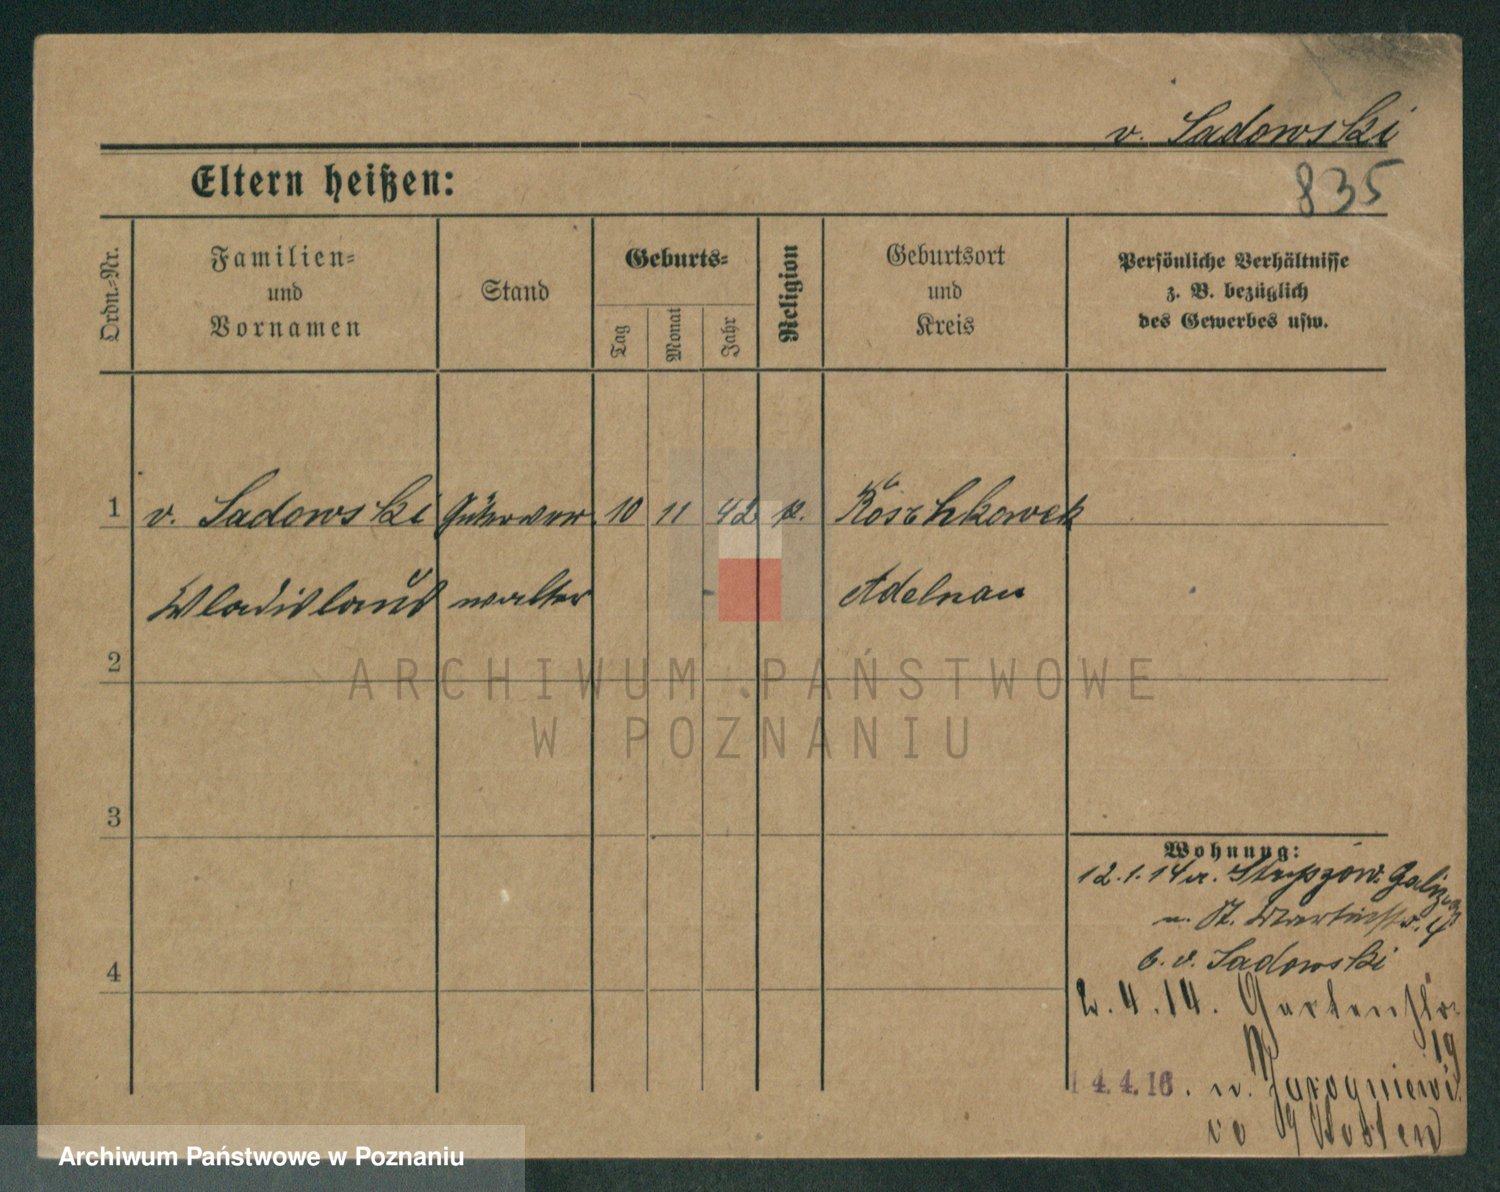 v. Sadowski
Eltern heißen:
835
Ordn.-Nr.
Familien-
und
Vornamen
Stand
Geburts-
Tag
Monat
Jahr
Religion
Geburtsort
und
Kreis
Persönliche Verhältnisse
z. B. bezüglich
des Gewerbes usw.
1 v. Sadowski Güterver 10 11 42 k. Roschkowek
Wladislaus walter Adelnau
2
ARCHIWUM PAŃSTWOWE
W POZNANIU
3
Wohnung:
12.1.14 v. Galizien
n. St. Martinstr. 4
b. v. Sadowski
2.4.14. Gartenstr.
19
14.4.16. n.
Kosten
4
Archiwum Państwowe w Poznaniu